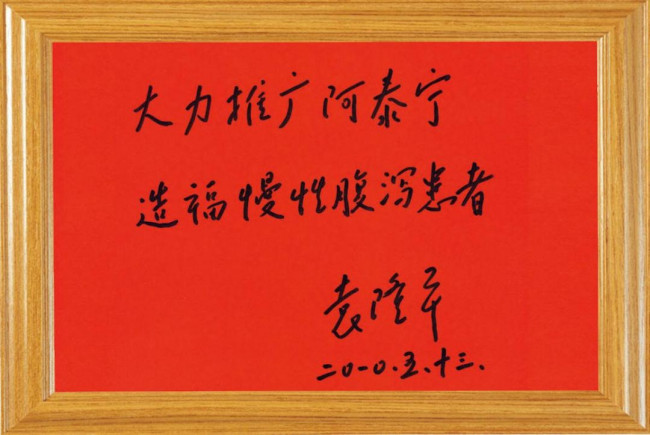 大力推广阿泰宁
造福慢性腹泻患者
袁隆平
二〇一〇.五、十三.